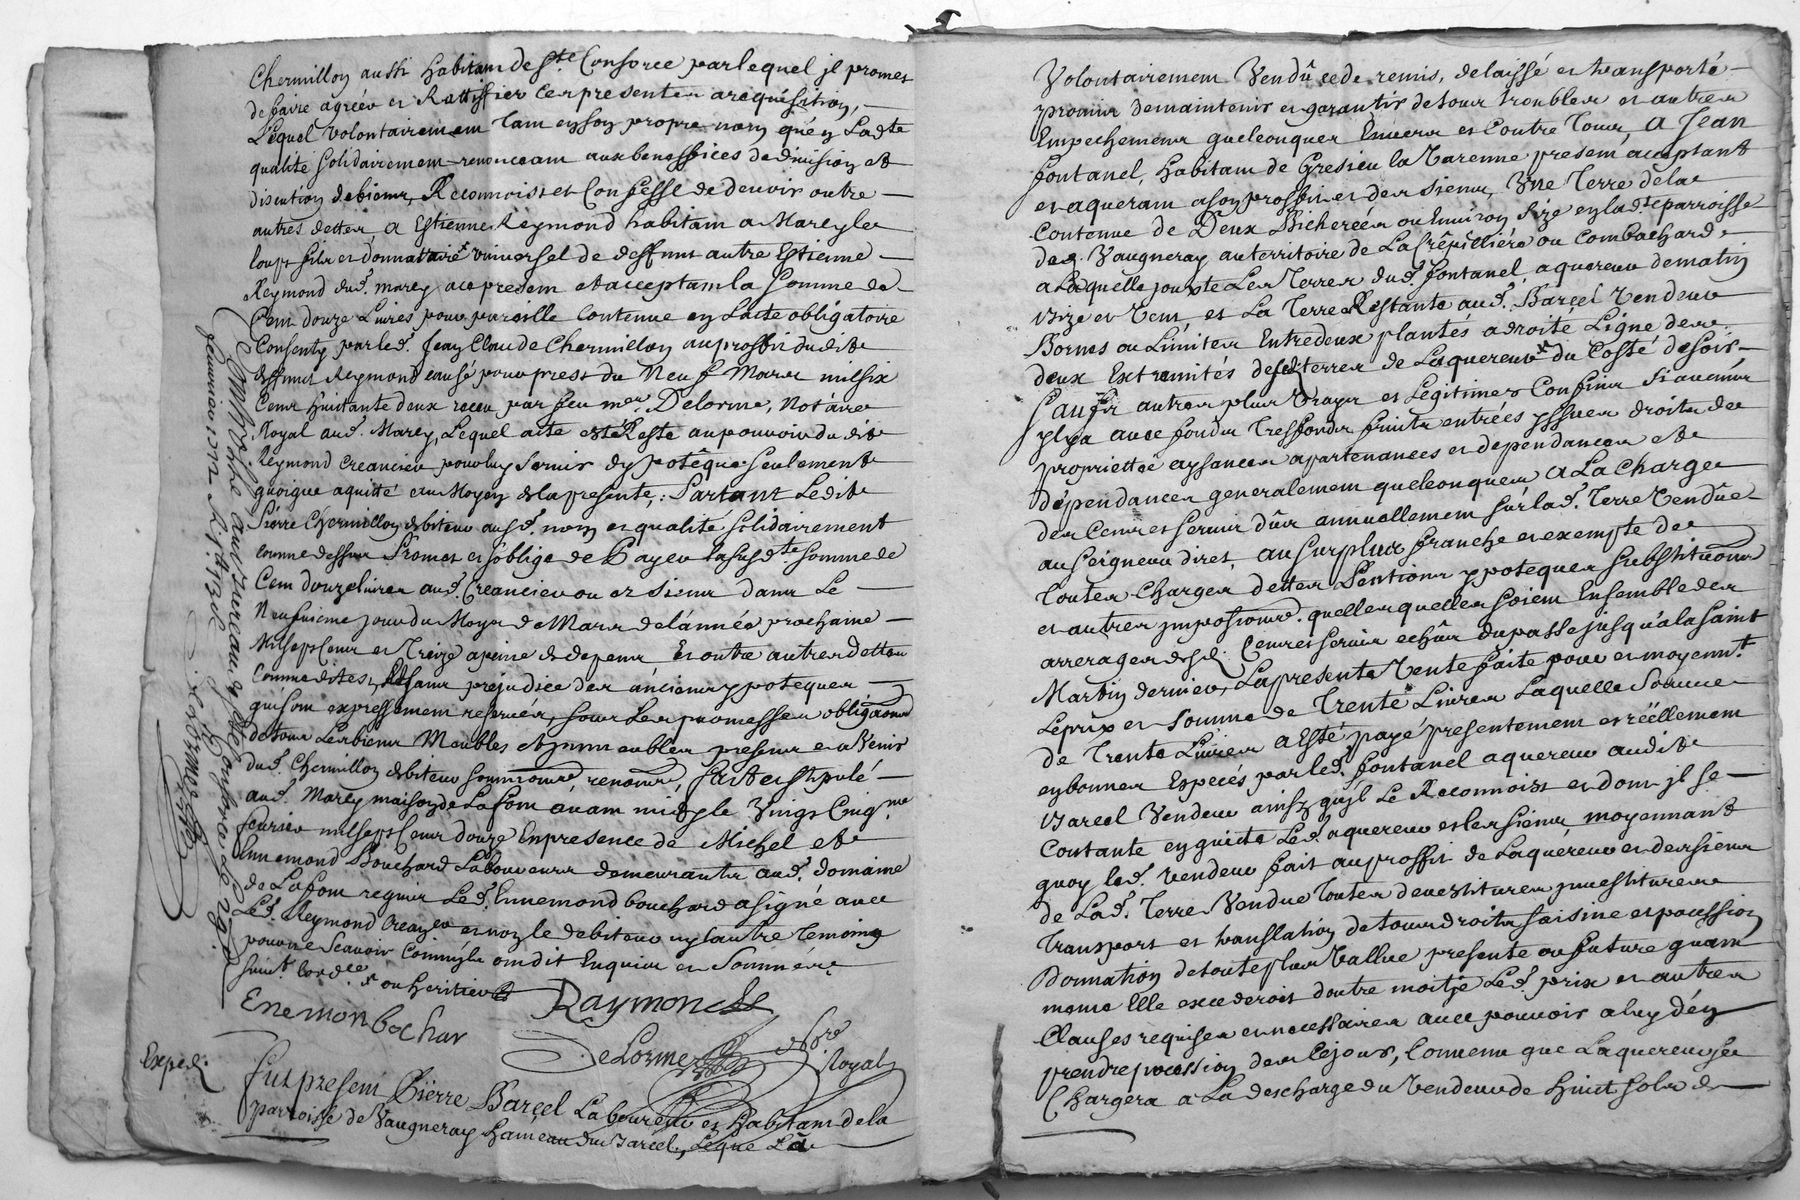 Chermillon aussi habitant de Ste Consorce par lequel jl promet
de faire agréer et Rattiffier
Lequel volontairement tant en son propre nom qu'en Ladte
qualité solidairement renonceant aux beneffices de division et
discution de biens, Reconnoist et Confesse de devoir outre
autres dettes a Estienne Reymond habitant a Marcy le
loup fils et donnataire* universel de deffunt autre Estienne
Reymond dud. marcy present et acceptant la somme de
Cent douze Livres pour pareille contenue en Lacte obligatoire
Consenty par led. Jean Claude Chermillon au proffit dudit
deffunt Reymond causé pour prest du Neuf Mars mil six
Cent huitante deux receu par feu me. Delorme, Notaire
Royal aud. Marcy, Lequel acte est Resté au pouvoir dudit
Reymond creancier pour luy servir dypotêque seulement
quoique aquitté au Moyen de la presente; Partant Ledit
Pierre Chermillon debiteur ausd. nom et qualité solidairement
comme dessus Promet et s'oblige de Payer lasusdte somme de
Cent douze livres aud. Creancier ou es siens dans Le
Neufvieme jour du Moys de Mars de l'année prochaine
Mil sept Cent et Treize a peine de depens Et outre autres dettes
Comme dites, Et sans prejudice des anciens ypoteques
qui sont expressement reservés, sous les promesses obligaons
de tous Les biens Meubles et immeubles presens et a Venir
dud. Chermillon debiteur renonce, fait et stipulé
aud. Marcy maison de Lafont avant midy le Vingt Cinqme
fevrier mil sept Cent douze En presence de Michel et
Ennemond Bouchard Laboureurs demeurants aud. domaine
de Lafont requis Led. Ennemond bouchard a signé avec
Led. Reymond creancier et non le debiteur ny lautre temoing
pour ne scavoir Comm'jls ont dit Enquis et Sommés
suivt. lordce * ou heritier
Enemon bochar
Raymond
DeLorme
Royal
Exped.
Controllé au bureau de Ste Consorce le 29e
fevrier 1712
Delorme
Fut present Pierre Barçel Laboureur et habitant de la
parroisse de Vaugneray hameau du Barcel, Leque La
Volontairement Vendû cedé remis, delaissé et transporté
promis de maintenir et garantir de tous troubles et autres
Empechemens quelconques Envers et Contre Tous, A Jean
fontanel, habitant de Gresieu la Varenne present acceptant
et aquerant a son proffit et des siens, Une Terre de la
Contenue de Deux Bicherées ou Environ size en lad.te parroisse
de Vaugneray au territoire de La frepilliére ou Combachard
a Laquelle jouxte Les Terres dud. fontanel aquereur de matin
bize et Vent et La Terre Restante aud. Barçel Vendeur
Bornes ou Limites Entredeux plantés a droite Ligne des
deux Extremités desd. terres de Laquereur* du Costé de soir
Sauf ses autres plus Vrays et Legitimes Confins si aucuns
yl y a avec fonds Tresfonds fruits entrées yssues droits de
proprietté aysances apartenances et dependances et
dépendances generalement quelconques A La Charge
des Cens et servis dûs annuellement sur lad. Terre Vendûe
au Seigneur diret, au surplus franche et exempte de
Toutes Charges dettes Pentions ypoteques substitutions
et autres impositions quelles quelles soient Ensemble des
arrerages desd. Cens et servis echûs du passé jusqu'à la saint
Martin dernier, La presente Vente faite pour et moyent.
Le prix et somme de Trente Livres Laquelle Somme
de Trente Livres a Esté payé presentement et réellement
en bonnes Especés par led. fontanel aquereur audit
Barcel Vendeur ainsy qu'jl Le Reconnoist et dont jl se
Contante en quitte Led. aquereur et les siens, moyennant
quoy led. vendeur fait au proffit de Laquereur et des siens
de Lad. Terre Vendue Toutes devestitures jnvestitures
Transport et translation de tous droits saisine et pocession
Donnation de toute plus Vallue presente ou future quant
meme Elle excederoit d'outre moitje Led. prix et autres
Clauses requises et necessaires avec pouvoir a luy d'en
prendre pocession dez ce jour, Convenu que Laquereur se
Chargera a La descharge du Vendeur de huit sols de